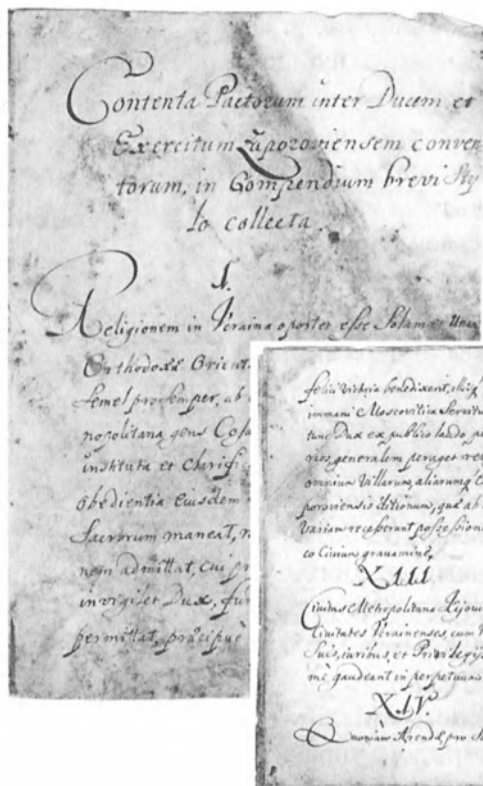 Contenta Pactorum inter Ducem et
Exercitum Zaporoviensem conven
torum, in Compendium brevi Sty
lo collecta.
I.
Religionem in Vcraina oportet esse Solam et Unam
Orthodoxæ Orient
semel pro semper, ab
nopolitana gens Cosa
instituta et clarifi
obedientia eiusdem
Sacrorum maneat, n
nem admittat, cui pr
invigilet Dux, fur
permittat, præcipuè
felici victoria benedixerit,
immani Moscovitica Servitu
tunc Dux ex publico laudo pe
ries, generalem peraget rev
omnium Villarum, aliarumq
poroviensis ditionum, quæ ab
variam receperunt possession
co Civium gravamine,
XIII.
Civitas Metropolitana Kijov
Civitates Vcrainenses, cum
Suis, iuribus, et Privilegijs
mè gaudeant in perpetuum
XIV.
Quoniam Arendæ pro